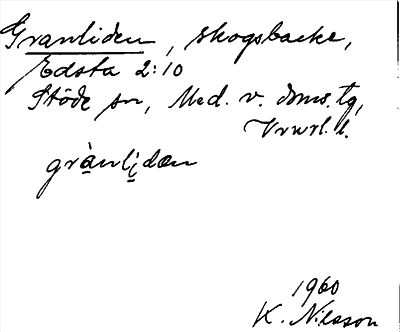 Granliden, skogsbacke,
Edsta 2:10
Stöde sn, Med. v. dms. tg,
grànlidæn
1960
K. Nilsson